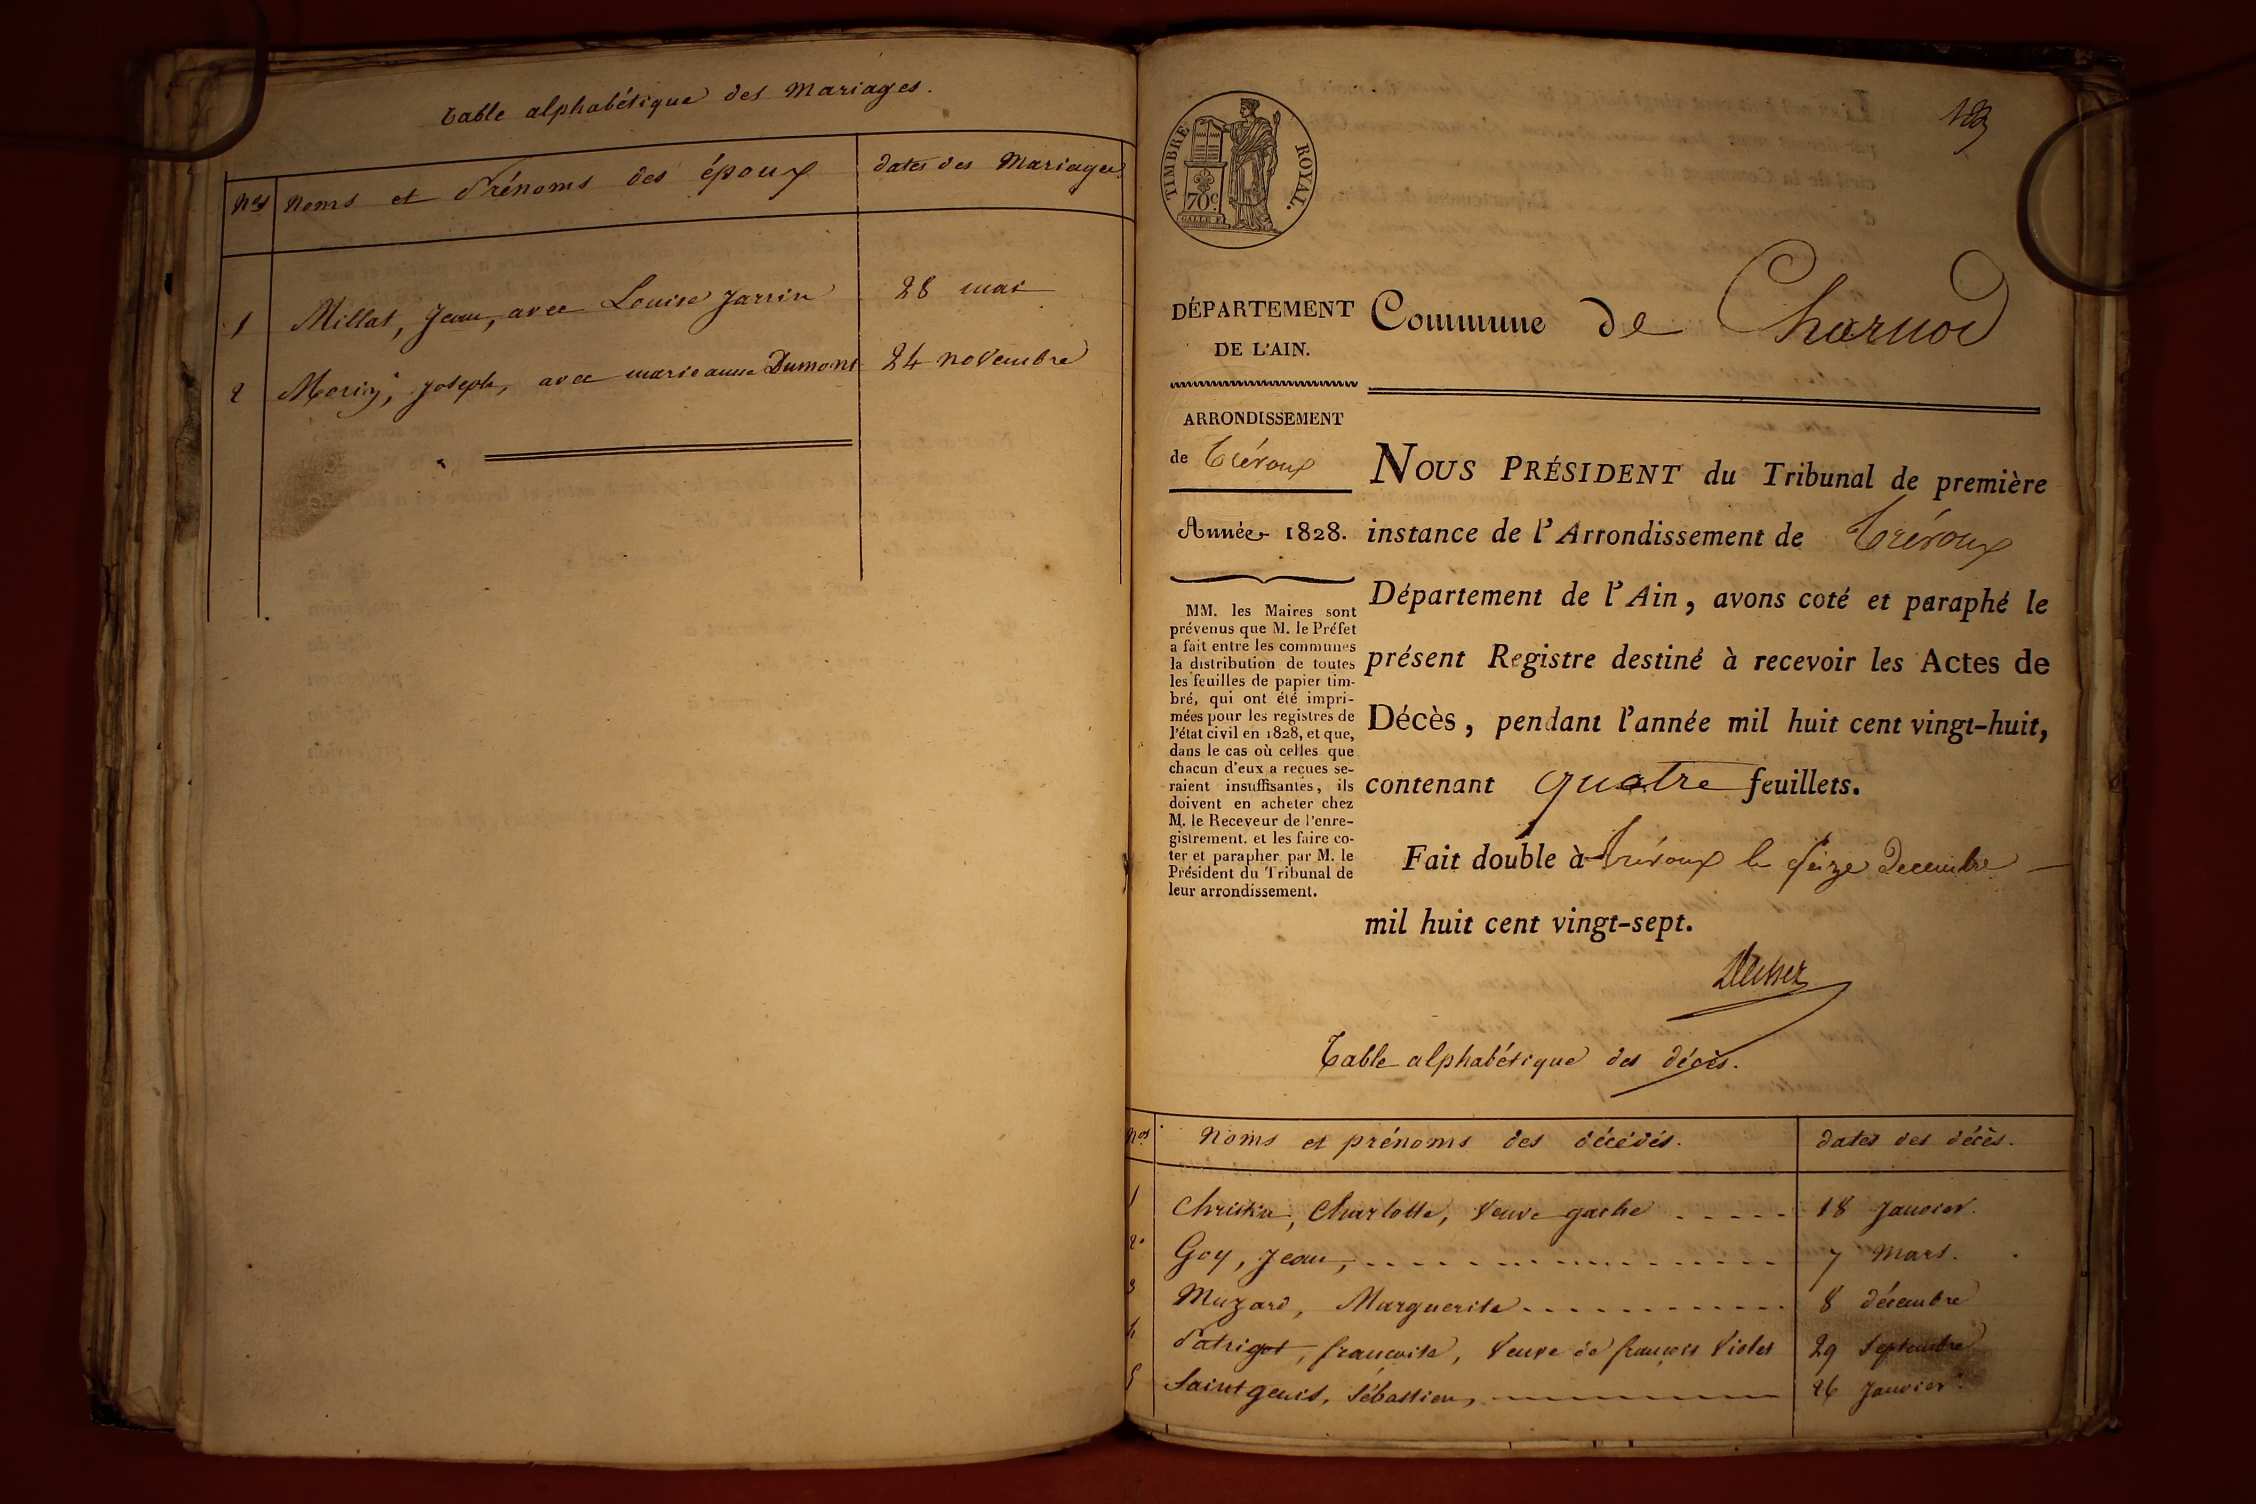 Table alphabétique des Mariages.
Nos Noms et Prénoms des époux dates des Mariages
1 Millat, Jean, avec Louise Jarrin 28 mai
2 Morin, Joseph, avec marie anne Dumont 24 novembre
TIMBRE ROYAL.
70c
DÉPARTEMENT
DE L'AIN.
ARRONDISSEMENT
de Trévoux
Année 1828.
MM. les Maires sont
prévenus que M. le Préfet
a fait entre les communes
la distribution de toutes
les feuilles de papier tim-
bré, qui ont été impri-
mées pour les registres de
l'état civil en 1828, et que,
dans le cas où celles que
chacun d'eux a reçues se-
raient insuffisantes, ils
doivent en acheter chez
M. le Receveur de l'enre-
gistrement. et les faire co-
ter et parapher par M. le
Président du Tribunal de
leur arrondissement.
Commune de Charnod
NOUS PRÉSIDENT du Tribunal de première
instance de l'Arrondissement de Trévoux
Département de l'Ain, avons coté et paraphé le
présent Registre destiné à recevoir les Actes de
Décès, pendant l'année mil huit cent vingt-huit,
contenant quatre feuillets.
Fait double à Trévoux le seize Decembre
mil huit cent vingt-sept.
Table alphabétique des décès.
Nos Noms et prénoms des décédés. dates des décès.
1 Charlotte, Veuve gache 18 Janvier.
2 Goy, Jean, 7 Mars.
3 Muzard, Marguerite 8 décembre
4 Patrigot, françoise, Veuve de françois Violet 29 Septembre
5 Saint genis, Sébastien, 26 Janvier.